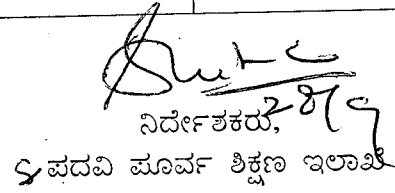 28/9
ನಿರ್ದೇಶಕರು,
ಪದವಿ ಪೂರ್ವ ಶಿಕ್ಷಣ ಇಲಾಖೆ